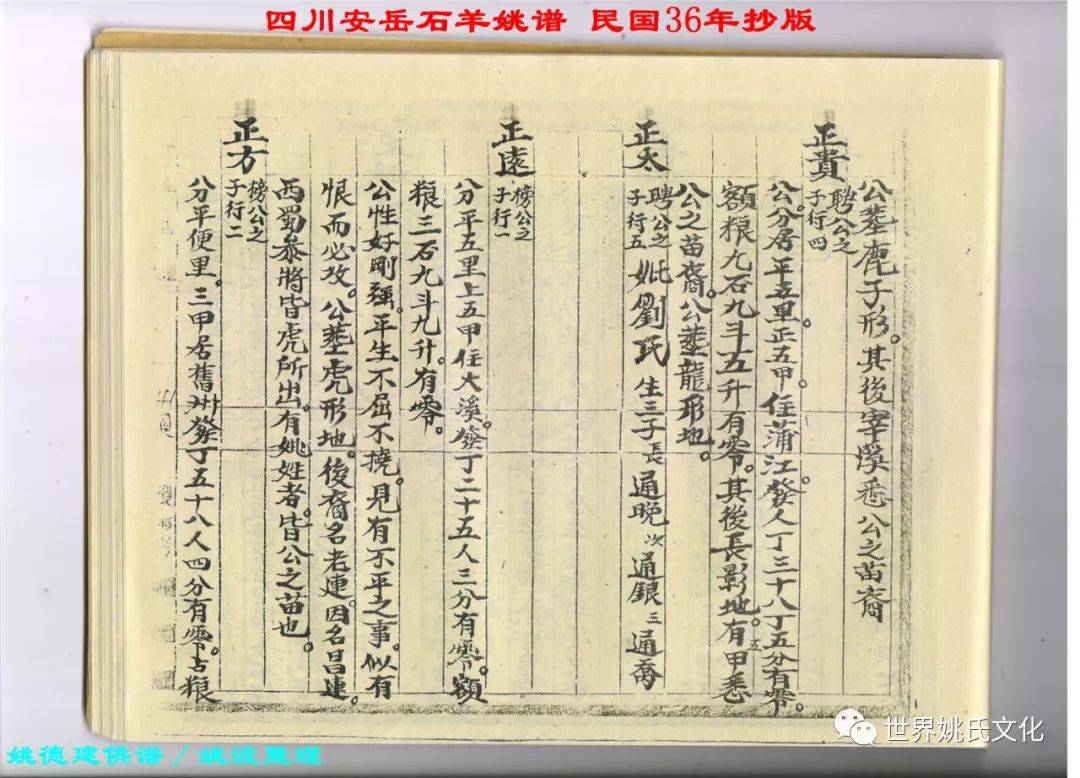 四川安岳石羊姚谱 民国36年抄版
公塟鹿子形。其後宰溪悉公之苗裔
正貴
聘公之
子行四
公。分居平五里。正五甲。住蒲江。發人丁三十八丁五分有零。
額粮九石九斗五升有零。其後長影地。有五甲悉
公之苗裔。公塟龍形地。
正太
聘公之
子行五
妣劉氏 生三子長通晚次通銀三通喬
正遠
榜公之
子行一
分平五里上五甲住大溪。發丁二十五人三分有零。額
粮三石九斗九升。有零。
公性好剛强。平生不屈不撓。見有不平之事。似有
恨而必攻。公塟虎形地。後裔名老連。因名昌連。
西蜀叅將皆虎所出。有姚姓者。皆公之苗也。
正方
榜公之
子行二
分平便里。三甲居舊州發丁五十八人四分有零。占粮
世界姚氏文化
姚德建供谱/姚 整理